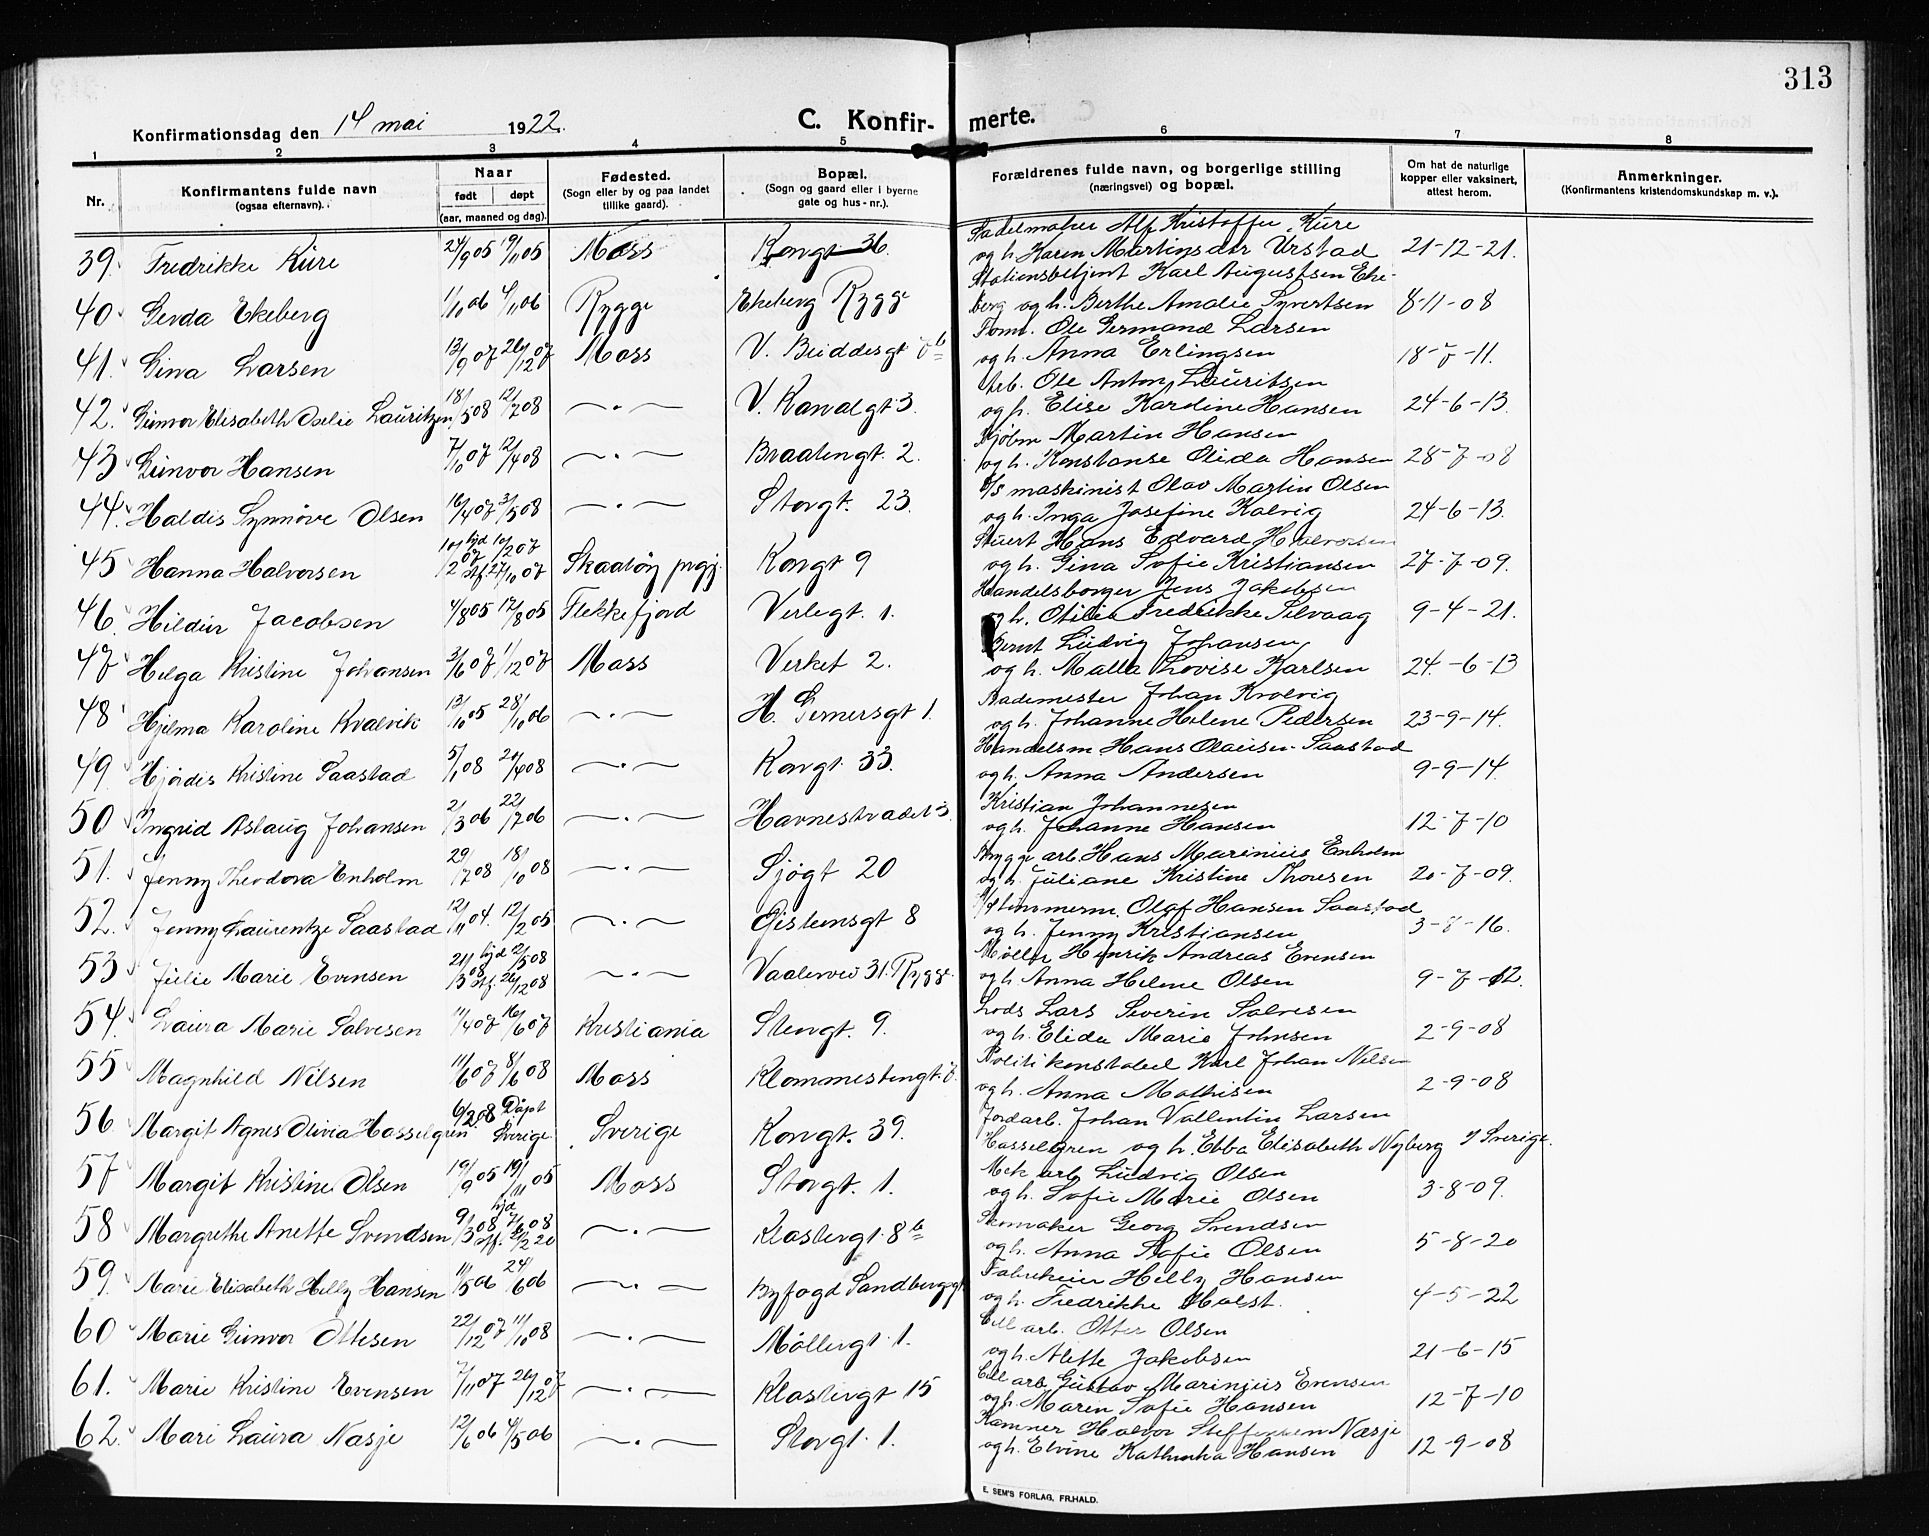 313
Konfirmationsdag den 14 mai 1922.
C. Konfir- merte.
1 2 3 4 5 6 7 8
Nr. Konfirmantens fulde navn (ogsaa efternavn). Naar født døpt (aar, maaned og dag). Fødested. (Sogn eller by og paa landet tillike gaard). Bopæl. (Sogn og gaard eller i byerne gate og hus-nr.). Forældrenes fulde navn, og borgerlige stilling (næringsvei) og bopæl. Om hat de naturlige kopper eller vaksinert, attest herom. Anmerkninger. (Konfirmantens kristendomskundskap m. v.).
Sadelmaker Alf Kristoffer Kure
39. Fredrikke Kure 24/9 05 19/11 05 Moss Kongt 36. og h. Karen Martinsdtr Urstad 21-12-21.
Stationsbetjent Karl Augustsen Eke-
40. Gerda Ekeberg 1/10 06 4/11 06 Rygge Ekeberg Rygge berg og h. Berthe Amalie Syvertsen 8-11-08
Ole Germand Larsen
41. Gina Larsen 13/9 07 26/12 07 Moss V. Buddesgt og h. Anna Erlingsen 18-7-11.
Arb. Ole Anton Lauritsen
42. Gunvor Elisabeth Oselie Lauritzen 18/5 08 12/7 08 —〃— V. Kanalgt 3. og h. Elise Karoline Hansen 24-6-13.
Sjøm Martin Hansen
43 Gunvor Hansen 7/10 07 12/4 08 —〃— Braatengt. 2. og h. Konstanse Olida Hansen 28-7-08
D/S maskinist Olav Martin Olsen
44. Haldis Synnøve Olsen 16/4 07 3/5 08 —〃— Storgt. 23. og h. Inga Josefine Kalvig 24-6-13.
Stuert Hans Edvard Halvorsen
45 Hanna Halvorsen 10/12 07 hjd 10/2 07 stf. 27/10 07 Skaatøy prgj. Kongt 9 og h. Gina Sofie Kristiansen 27-7-09.
Handelsborger Jens Jakobsen
46. Hildur Jacobsen 4/8 05 17/8 05 Flekkefjord Verlegt. 1. og h. Otilie Fredrikke Selvaag 9-4-21.
Bernt Ludvig Johansen
47 Helga Kristine Johansen 3/6 07 1/12 07 Moss Verket 2. og h. Malla Lovise Karlsen 24-6-13
Bademester Johan Kvalvig
48 Hjelma Karoline Kvalvik 13/10 05 28/10 06 —〃— H. Gernersgt 1. og h. Johanne Helene Pedersen 23-9-14.
Handelsm Hans Olausen Saastad
49. Hjørdis Kristine Saastad 5/1 08 20/4 08 —〃— Kongt. 33. og h. Anna Andersen 9-9-14.
Kristian Johannesen
50 Ingrid Aslaug Johansen 2/3 06 22/7 06 —〃— Havnestradet 3. og h. Johanne Hansen 12-7-10
Brygge arb. Hans Marinius Enholm
51. Jenny Theodora Enholm 29/7 08 18/10 08 —〃— Sjøgt 20 og h. Juliane Kristine Thoresen 20-7-09.
Olaf Hansen Saastad
52. Jenny Laurentze Saastad 12/11 04. 12/2 05 —〃— Gistensgt 8 og h. Jenny Kristiansen 3-8-16.
Møller Henrik Andreas Evensen
53 Julie Marie Evensen 21/3 08 hjd 2/5 08 stf. 26/12 08 —〃— Vaalervei 31. Rygge. og h. Anna Helene Olsen 9-7-12.
Lods Lars Severin Salvesen
54. Laura Marie Salvesen 11/4 07 16/6 07 Kristiania Stengt. 9. og h. Elida Marie Johnsen 2-9-08
Politikonstabel Karl Johan Nilsen
55 Magnhild Nilsen 11/6 07 8/6 08 Moss Klommestengt. 7. og h. Anna Mathisen 2-9-08
Jordarb. Johan Vallentin Larsen
56. Margit Agnes Olivia Hasselgren 6/2 08 Døpt i Sverige. Sverige Kongt. 39. Hasselgren og h. Ebba Elisabeth Nyberg i Sverige.
Mek arb Ludvig Olsen
57 Margit Kristine Olsen 19/9 05 19/11 05 Moss Storgt. 1. og h. Sofie Marie Olsen 3-8-09.
Skomaker Georg Svendsen
58 Margrethe Anette Svendsen 9/3 08 hjd 7/6 08 stf. 2/2 20 —〃— Klostergt. 8 b og h. Anna Sofie Olsen 5-8-20
Fabrikeier Helly Hansen
59. Marie Elisabeth Helly Hansen 11/5 06 24/6 06 —〃— Byfogd Sandbergsgt og h. Fredrikke Holst. 4-5-22
Cell arb. Otter Olsen
60 Marie Gunvor Ottesen 22/12 07 11/10 08 —〃— Møllergt. 1. og h. Alette Jakobsen 21-6-15
Cell arb Gustav Marinius Evensen
61. Marie Kristine Evensen 7/11 07 26/12 07 —〃— Klostergt 15 og h. Maren Sofie Hansen 12-7-10
Kamner Halvor Steffensen Næsje
62. Mari Laura Nasje 12/6 06 4/5 06 —〃— Storgt. 1. og h. Elvine Kathinka Hansen 12-9-08
E. SEM'S FORLAG, FR.HALD.